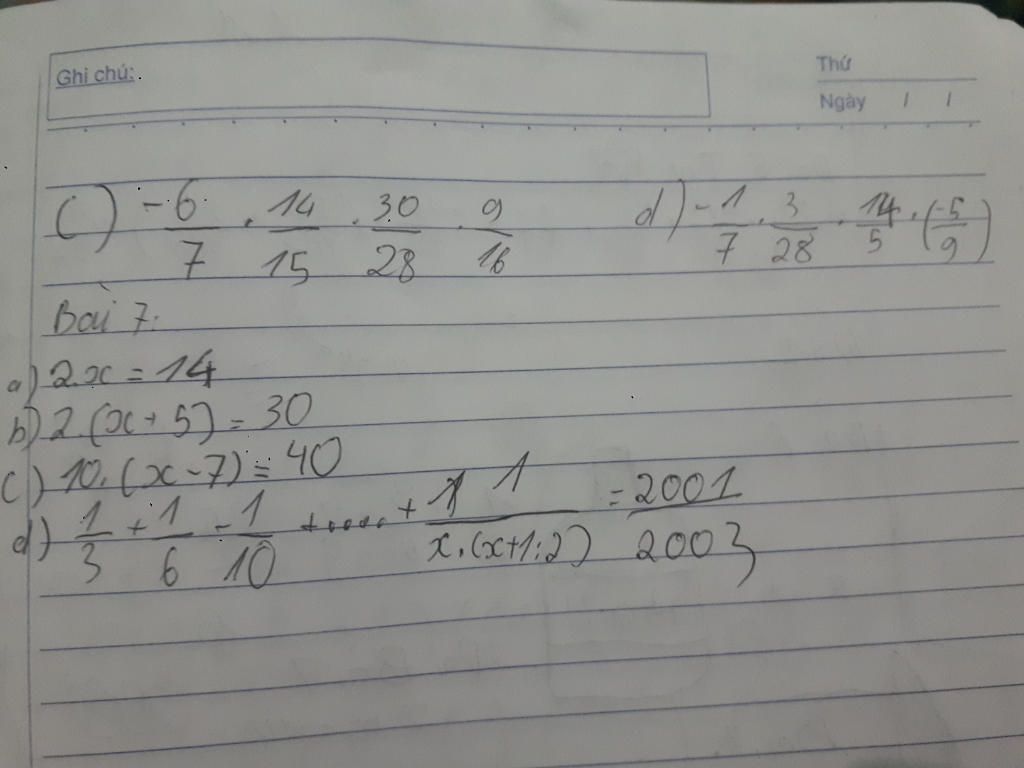 Ghi chú:
Thứ
Ngày / /
c) -6/7 . 14/15 . 30/28 . 9/16 d) -1/7 . 3/28 . 14/5 . (-5/9)
Bài 7:
a) 2.x = 14
b) 2.(x + 5) = 30
c) 10.(x - 7) = 40
d) 1/3 + 1/6 - 1/10 + ..... + 1/x.(x+1:2) = 2001/2003